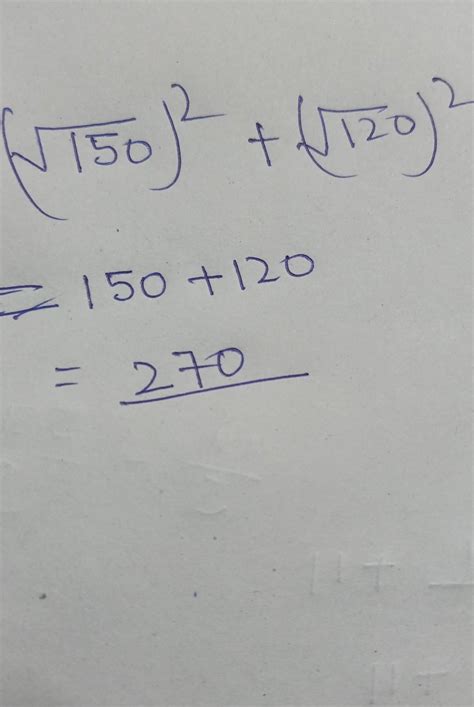 (√150)² + (√120)²
= 150 + 120
= 270